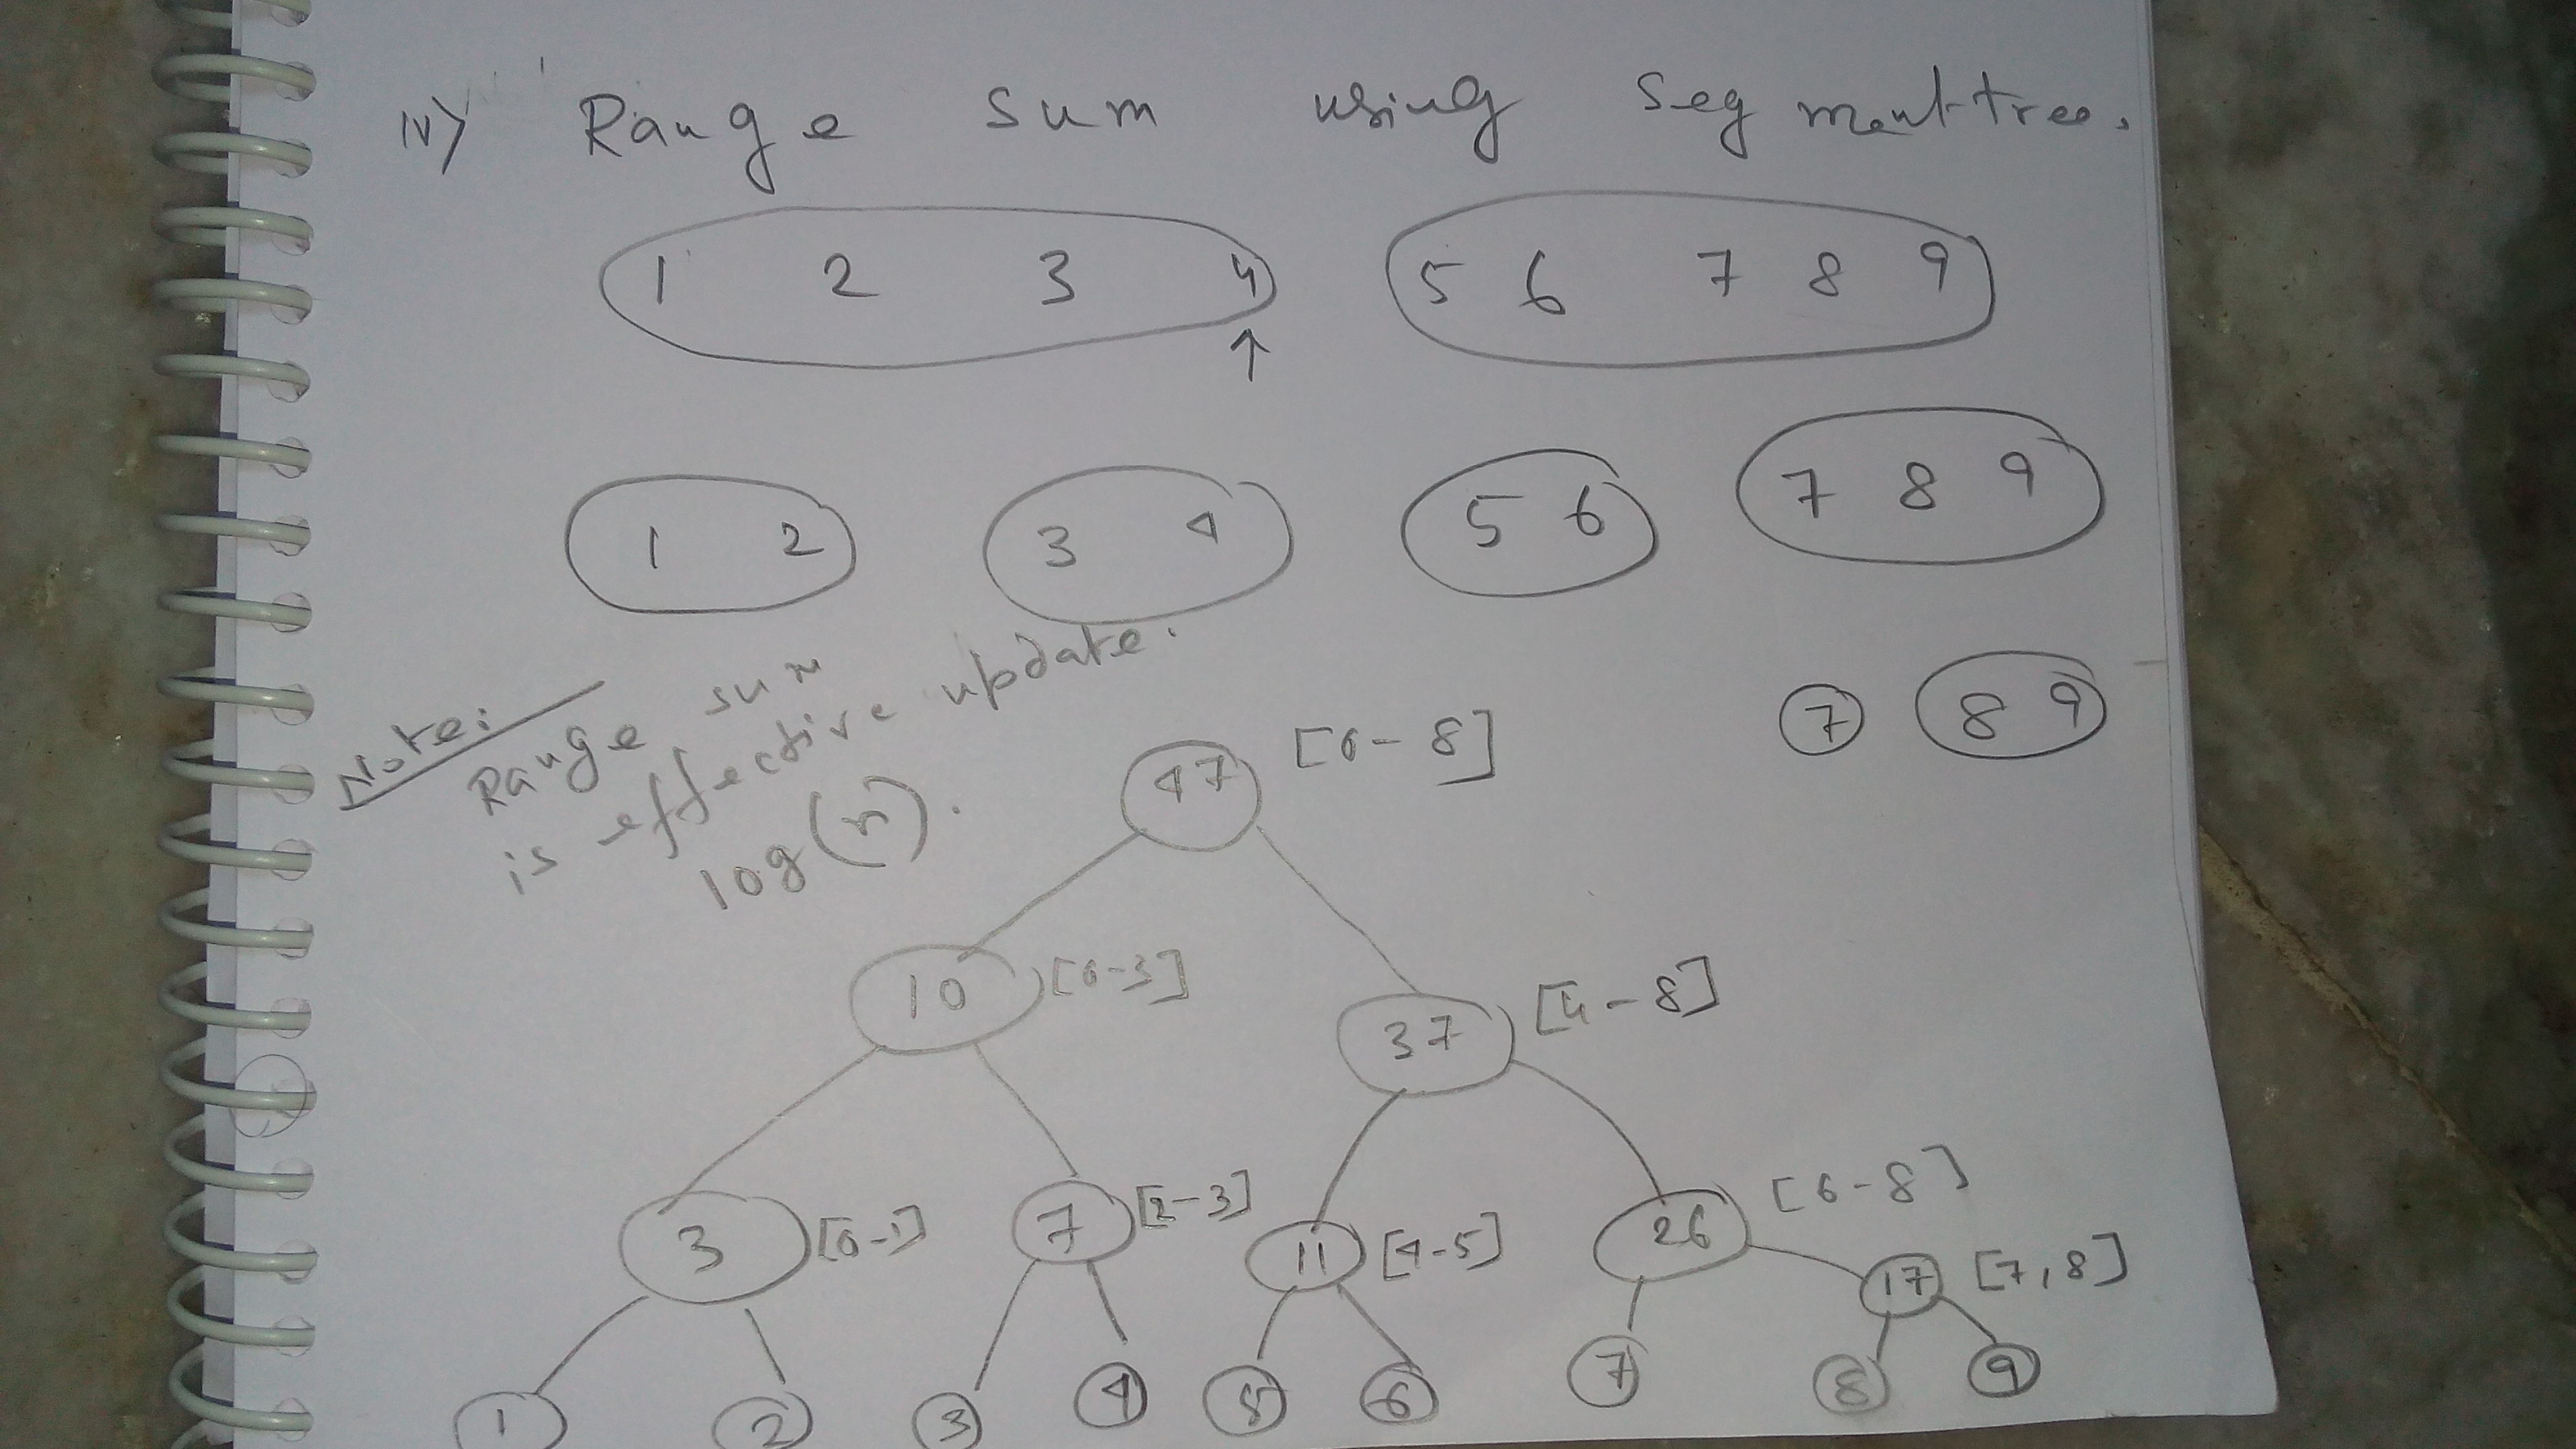 IV) Range sum using segment tree.
1 2 3 4 5 6 7 8 9
↑
1 2 3 4 5 6 7 8 9
7 8 9
Note:
Range sum
is effective update.
log(n).
47 [0-8]
10 [0-3] 37 [4-8]
3 [0-1] 7 [2-3] 11 [4-5] 26 [6-8]
17 [7,8]
1 2 3 4 5 6 7 8 9